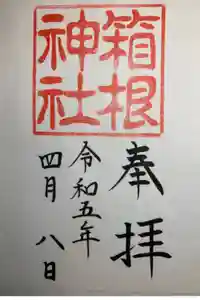 箱根
神社
奉拝
令和五年
四月八日